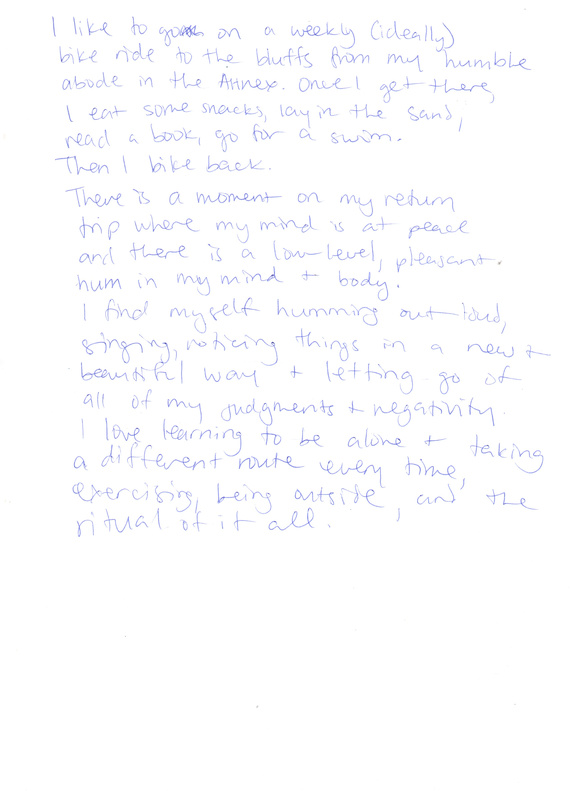 I like to go on a weekly (ideally)
bike ride to the bluffs from my humble
abode in the Annex. Once I get there,
I eat some snacks, lay in the sand,
read a book, go for a swim.
Then I bike back.
There is a moment on my return
trip where my mind is at peace
and there is a low-level, pleasant.
hum in my mind + body.
I find myself humming out loud,
singing, noticing things in a new +
beautiful way + letting go of
all of my judgments + negativity.
I love learning to be alone + taking
a different route every time,
exercising, being outside, and the
ritual of it all.